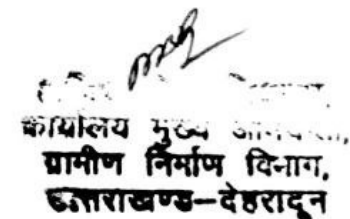 कार्यालय मुख्य अभियन्ता,
ग्रामीण निर्माण विभाग,
उत्तराखण्ड–देहरादून